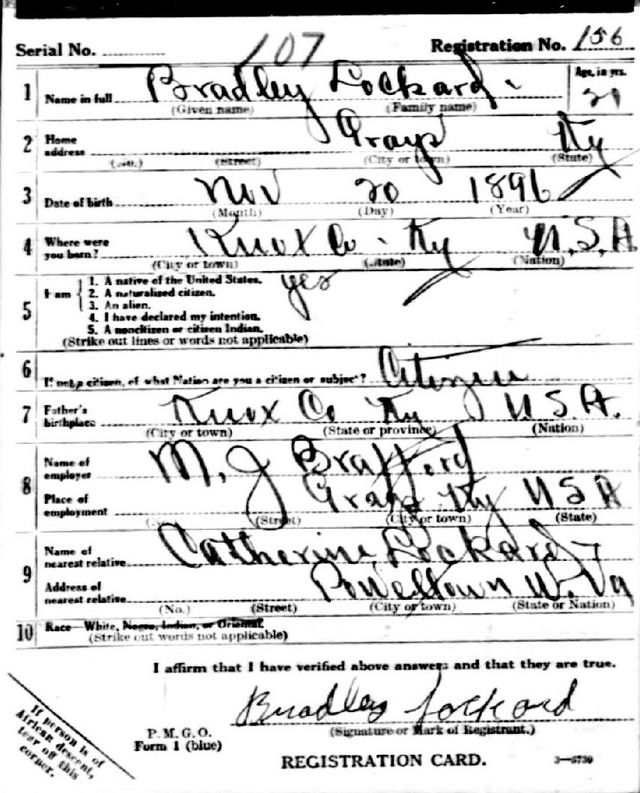 Serial No. 107 Registration No. 156
1 Name in full Bradley Lockard Age, in yrs. 21
(Given name) (Family name)
2 Home address Grays Ky
(No.) (Street) (City or town) (State)
3 Date of birth Nov 20 1896
(Month) (Day) (Year)
4 Where were you born? Knox Co. Ky U.S.A
(City or town) (State) (Nation)
5 I am
1. A native of the United States. yes
2. A naturalized citizen.
3. An alien.
4. I have declared my intention.
5. A noncitizen or citizen Indian.
(Strike out lines or words not applicable)
6 If not a citizen, of what Nation are you a citizen or subject? Citizen
7 Father's birthplace Knox Co Ky U.S.A.
(City or town) (State or province) (Nation)
8 Name of employer M. J Brafford
Place of employment Grays Ky U S A
(Street) (City or town) (State)
9 Name of nearest relative Catherine Lockard
Address of nearest relative Powelltown W. Va
(No.) (Street) (City or town) (State or Nation)
10 Race—White, Negro, Indian, or Oriental.
(Strike out words not applicable)
I affirm that I have verified above answers and that they are true.
Bradley Lockard
(Signature or Mark of Registrant.)
P. M. G. O.
Form 1 (blue)
REGISTRATION CARD. 3—5739
If person is of
African descent,
tear off this
corner.